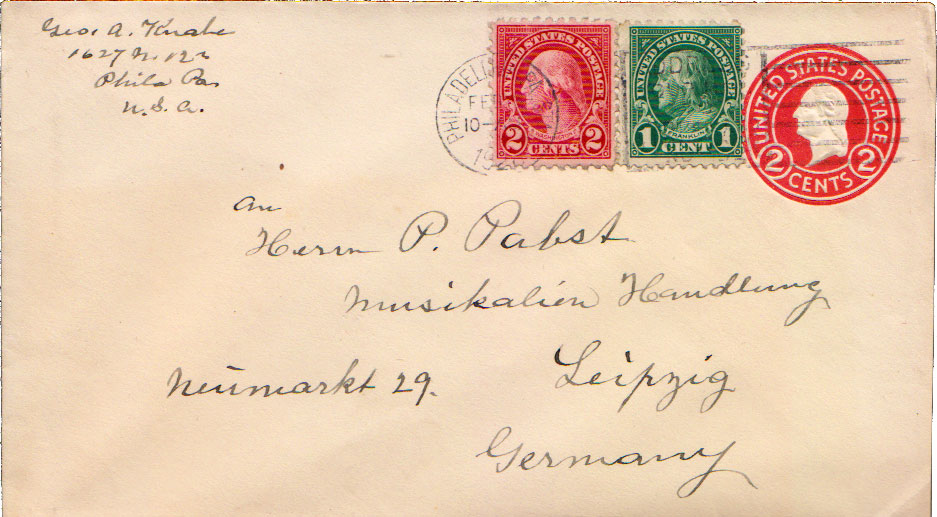 Geo. A. Knabe
1627 N. 12
Phila Pa
U.S.A.
UNITED STATES POSTAGE
2 CENTS 2
UNITED STATES POSTAGE
FRANKLIN
1 CENT 1
UNITED STATES POSTAGE
2 CENTS 2
PHILADEL
FE
10
19
an
Herrn P. Pabst
Musikalien Handlung
Neumarkt 29. Leipzig
Germany